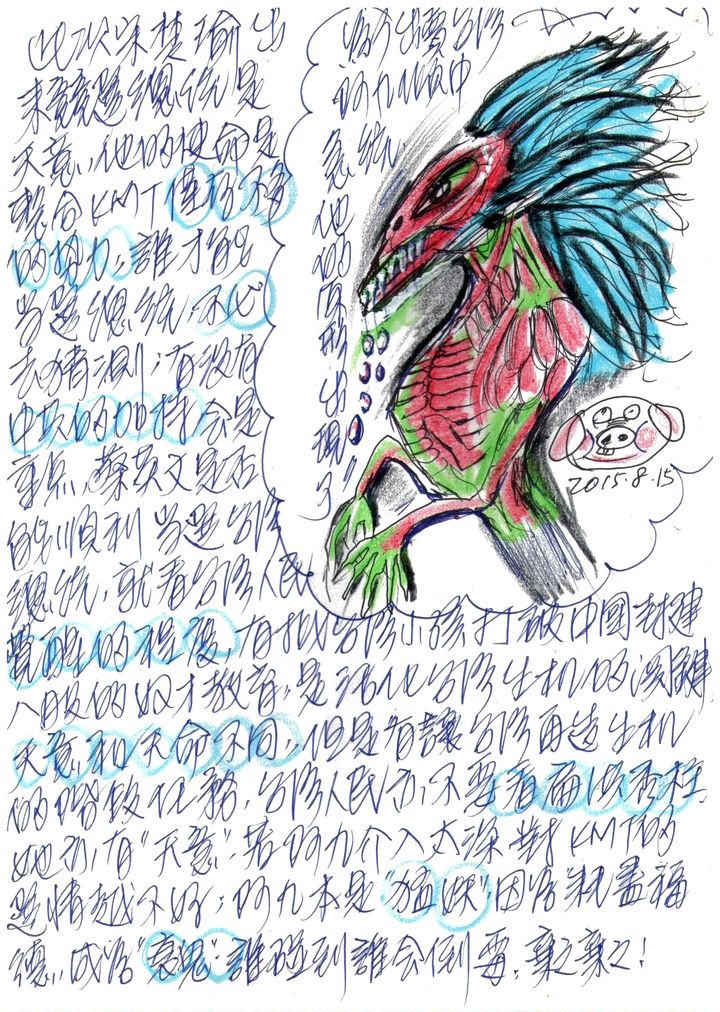 此次宋楚瑜出
來競選總統是
天意，他的使命是
整合KMT僅存不多
的勢力，誰才能
當選總統，不必
去猜測；有沒有
中共的加持會是
重點，蔡英文是否
能順利當選台灣
總統，就看台灣人民
覺醒的程度，有批台灣小孩打破中國封建
八股的奴才教育，是活化台灣生机的關鍵
天意和天命不同，但是有讓台灣再造生机
的階段任務，台灣人民亦不要看
她亦有"天意"；若阿九介入太深對KMT的
選情越不好；阿九本是"猛妖"因為耗盡福
德，成為"衰鬼"誰碰到誰會倒霉，棄之棄之！
出賣台灣
阿九
急統
他的原形出現了
2015.8.15